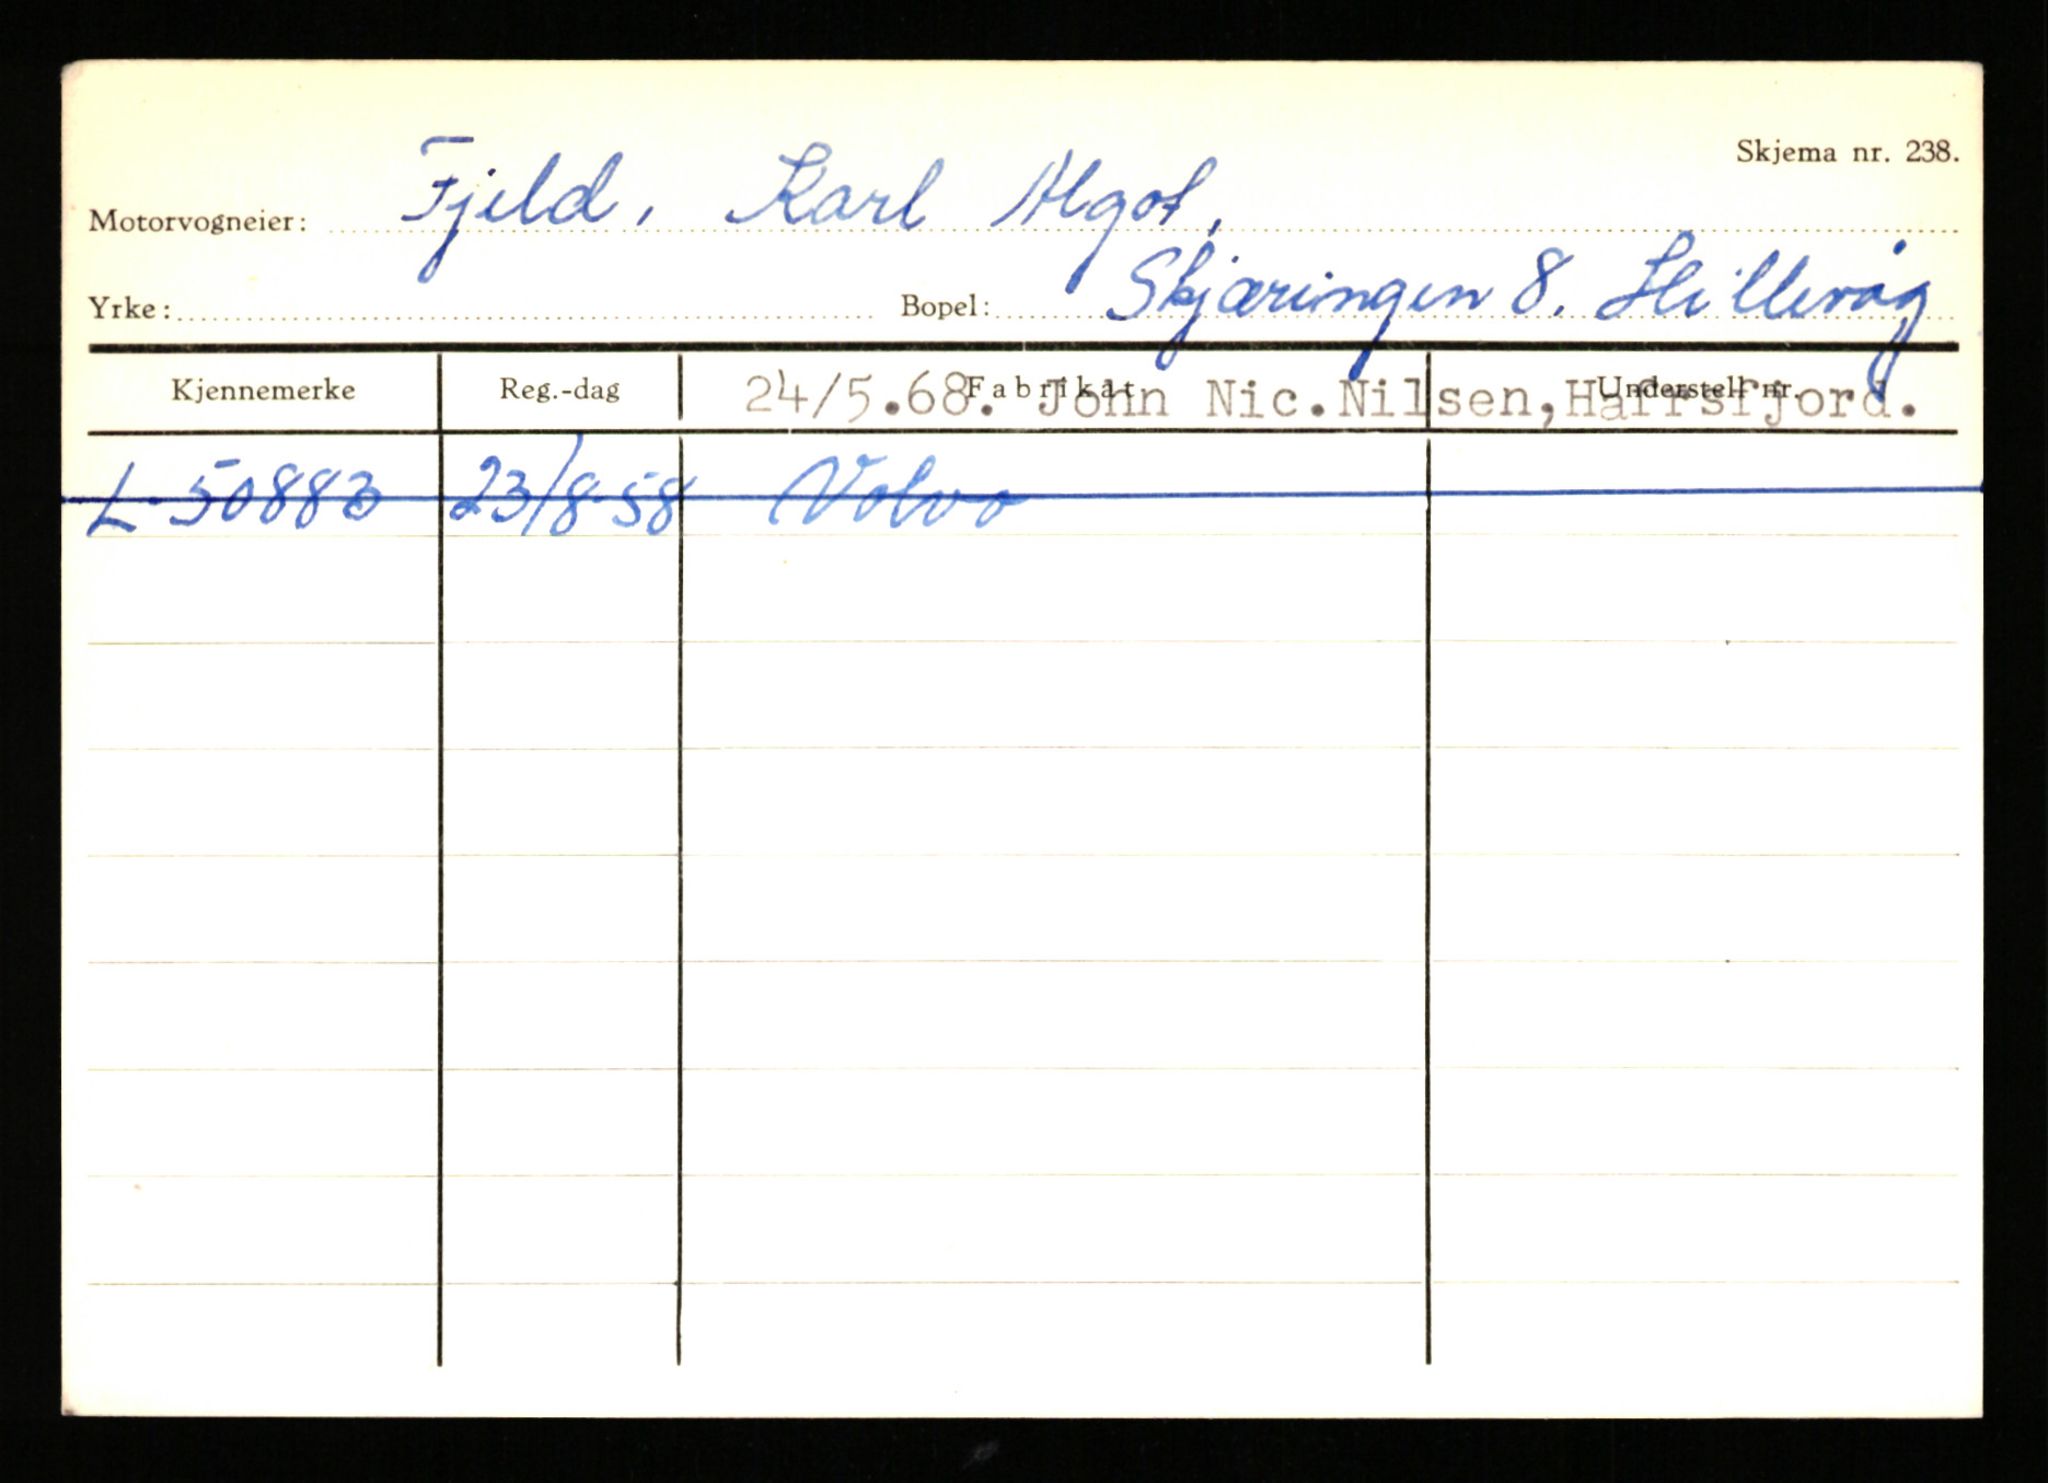 Skjema nr. 238.
Motorvogneier: Fjeld, Karl Algot,
Yrke: Bopel: Skjæringen 8. Hillevåg
Kjennemerke Reg.-dag Fabrikat Understell nr.
24/5.68. John Nic.Nilsen,Hafrsfjord.
L-50883 23/8-58 Volvo